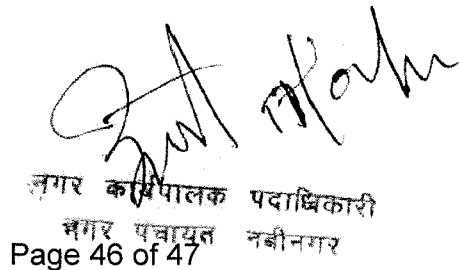 नगर कार्यपालक पदाधिकारी
नगर पंचायत नबीनगर
Page 46 of 47